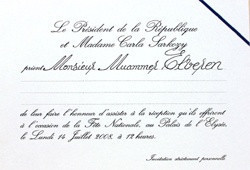 Le Président de la République
et Madame Carla Sarkozy
prient Monsieur Muammer
de leur faire l'honneur d'assister à la réception qu'ils offriront
à l'occasion de la Fête Nationale, au Palais de l'Elysée,
le Lundi 14 Juillet 2008, à 12 heures.
Invitation strictement personnelle